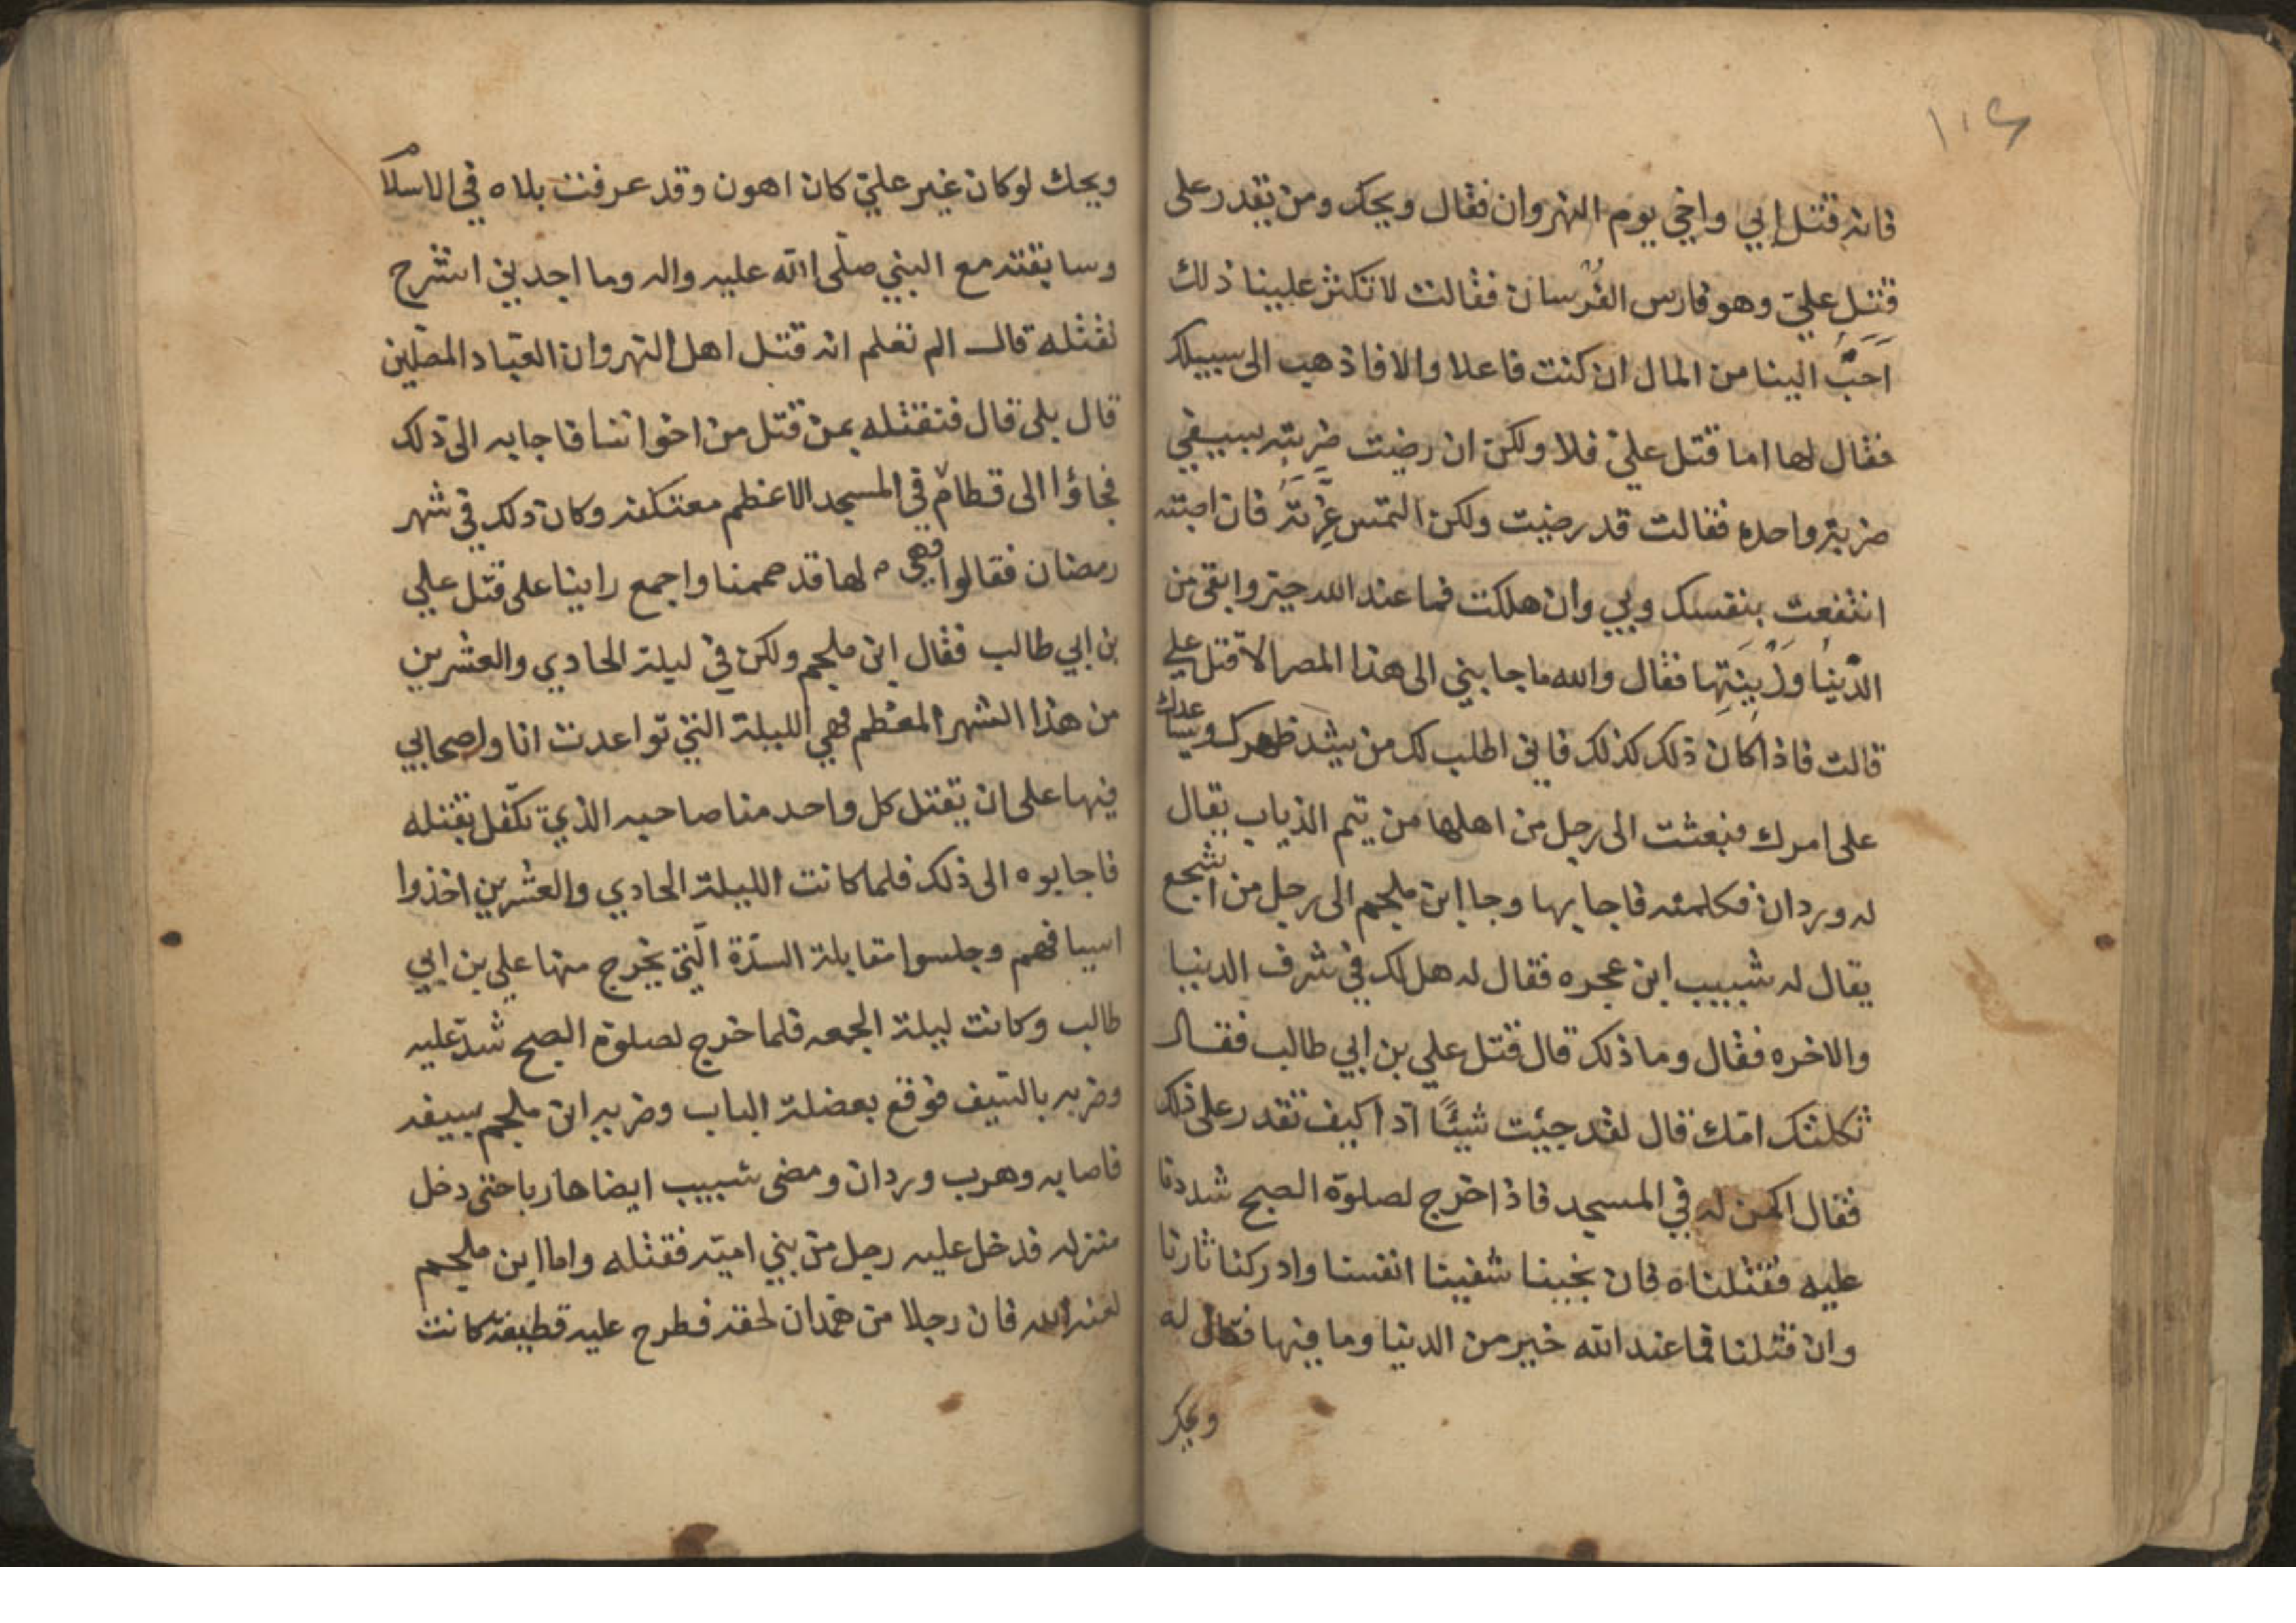 ١٠٤
فانه قتل ابي واخي يوم النهروان فقال ويحك ومن يقدر على
قَتَلِ عليّ وهو فارس الفُرسان فقالت لا تكثر علينا ذلك
اَحَبَّ الينا من المال ان كنت فاعلا والا فاذهب الى سبيلك
فقال لها اما قتل عليّ فلا ولكن ان رضيت ضربته بسيفي
ضربة واحده فقالت قد رضيت ولكن التمس غِرّتَهُ فان اصبته
انتفعت بنفسك وبي وان هلكت فما عند الله خير وابقى من
الدّنيا وَزْينَتِها فقال والله ما جا بني الى هذا المصر الّا قتل علي
قالت فاذا كان ذلك كذلك فاني اطلب لك من يشد ظهرك ويساعدك
على امرك فبعثت الى رجل من اهلها من تيم الذباب يقال
له وردان فكلمته فاجابها وجا ابن ملجم الى رجل من اشجع
يقال له شبيب ابن عجره فقال له هل لك في شرف الدنيا
والاخره فقال وما ذلك قال قتل علي بن ابي طالب فقال
ثكلتك امّك قال لقد جيئت شيئًا ادا كيف تقدر على ذلك
فقال اكمن له في المسجد فاذا خرج لصلوة الصبح شددنا
عليه فقتلناه فان نجينا شفينا انفسنا وادركنا ثارنا
وان قتلنا فما عند الله خير من الدنيا وما فيها فقال له
ويحك
ويحك لو كان غير عليّ كان اهون وقد عرفت بلاه في الاسلام
وسابقته مع النبي صلّى الله عليه واله وما اجدني انشرح
لقتله قال الم تعلم انه قتل اهل النهروان العبّاد المصلّين
قال بلى قال فنقتله بمن قتل من اخواننا فاجابه الى ذلك
فجاؤا الى قطام في المسجد الاعظم معتكفه وكان ذلك في شهر
رمضان فقالوا وهي لها قد صممنا واجمع راينا على قتل علي
بن ابي طالب فقال ابن ملجم ولكن في ليلة الحادي والعشرين
من هذا الشهر المعظم فهي الليلة التي تواعدت انا واصحابي
فيها على ان يقتل كل واحد منا صاحبه الذي تكّفل بقتله
فاجابوه الى ذلك فلما كانت الليلة الحادي والعشرين اخذوا
اسيافهم وجلسوا مقابلة السدّة الّتي يخرج منها علي بن ابي
طالب وكانت ليلة الجمعه فلما خرج لصلوة الصبح شدّ عليه
وضربه بالسّيف فوقع بعضلة الباب وضربه ابن ملجم بسيفه
فاصابه وهرب وردان ومضى شبيب ايضا هاربا حتى دخل
منزله فدخل عليه رجل من بني اميّه فقتله واما ابن ملجم
لعنه الله فان رجلا من همدان لحقه فطرح عليه قطيفة كانت